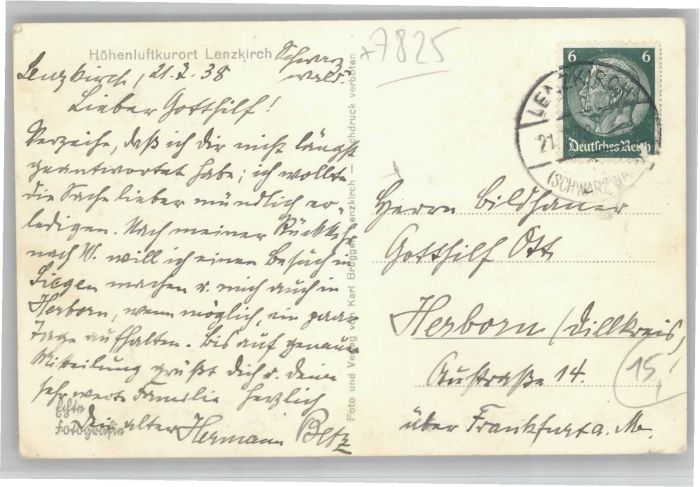 Höhenluftkurort Lenzkirch Schwarzwald.
Lenzkirch, 21.7.38
Lieber Gotthilf!
Verzeihe, daß ich dir nicht längst
geantwortet habe; ich wollte
die Sache lieber mündlich er-
ledigen. Nach meiner Rückkehr
nach W. will ich einen Besuch in
Siegen machen u. mich auch in
Herborn, wenn möglich, ein paar
Tage aufhalten. Bis auf genaue
Mitteilung grüßt dich u. deine
sehr werte Familie herzlich
dein alter Hermann Betz
Echte
Fotografie
Foto und Verlag von Karl Brugger, Lenzkirch — Nachdruck verboten
7825
6 6
Deutsches Reich
LENZKIRCH
21.
(SCHWARZWALD)
Herrn Bildhauer
Gotthilf Ott
Herborn (Dillkreis)
Austraße 14.
15,
über Frankfurt a. M.